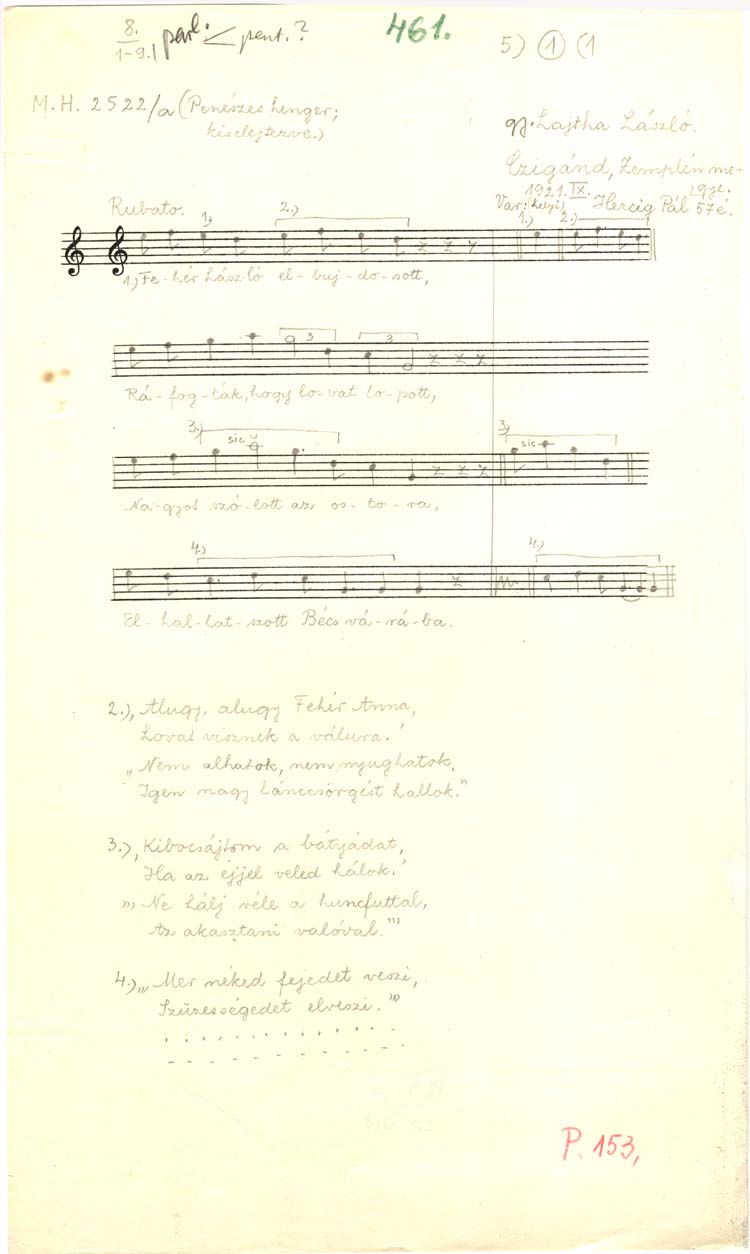 8. parl. < pent. ? 461. 5) ① (1
1-9.
M. H. 2522/a (Penészes henger;
kiselejtezve.)
gy. Lajtha László.
Czigánd, Zemplén me-
gye.
1921. IX.
Var: (helyi) Hercig Pál 57 é.
Rubato. 1.) 2.) 1.) 2.)
1.) Fe-hér Lász-ló el-buj-do-sott,
3 3
Rá-fog-ták, hogy lo-vat lo-pott,
3.) sic 3.) sic
Na-gyot szó-lott az os-to-ra,
4.) 4.)
El-hal-lat-szott Bécs vá-rá-ba.
2.) ‚Alugy, alugy Fehér Anna,
Lovat visznek a válura.’
„Nem alhatok, nem nyughatok,
Igen nagy lánccsörgést hallok.”
3.) ‚Kibocsájtom a bátyádat,
Ha az éjjel veled hálok.’
„‚Ne hálj véle a huncfuttal,
Az akasztani valóval.”’
4.) „‚Mer néked fejedet veszi,
Szüzességedet elveszi.”’
. . . . . . . . . . . .
- - - - - - - - - - - -
P. 153,